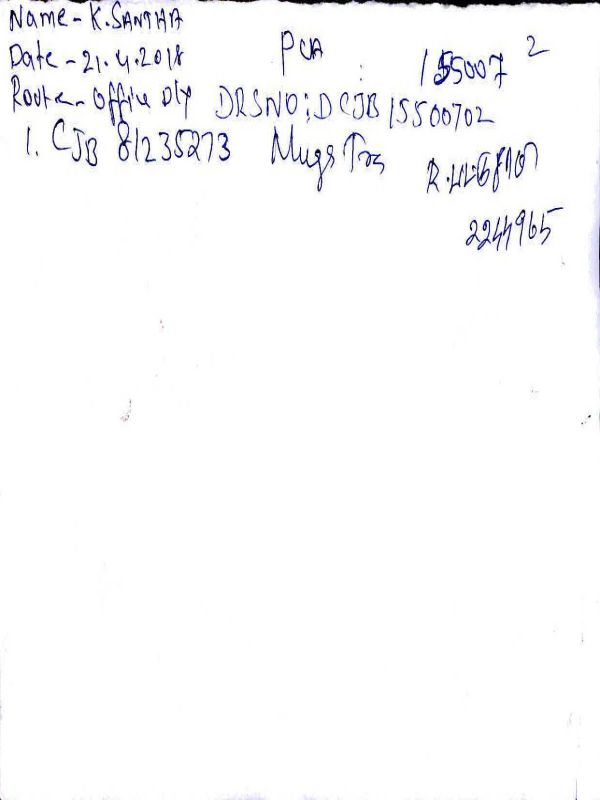 Name - K. SANTHA
Date - 21.4.2018 PCA 155007 2
Route - Office Dly DRSNO: DCJB 15500702
1. CJB 81235273 Mugs Trs
2244965